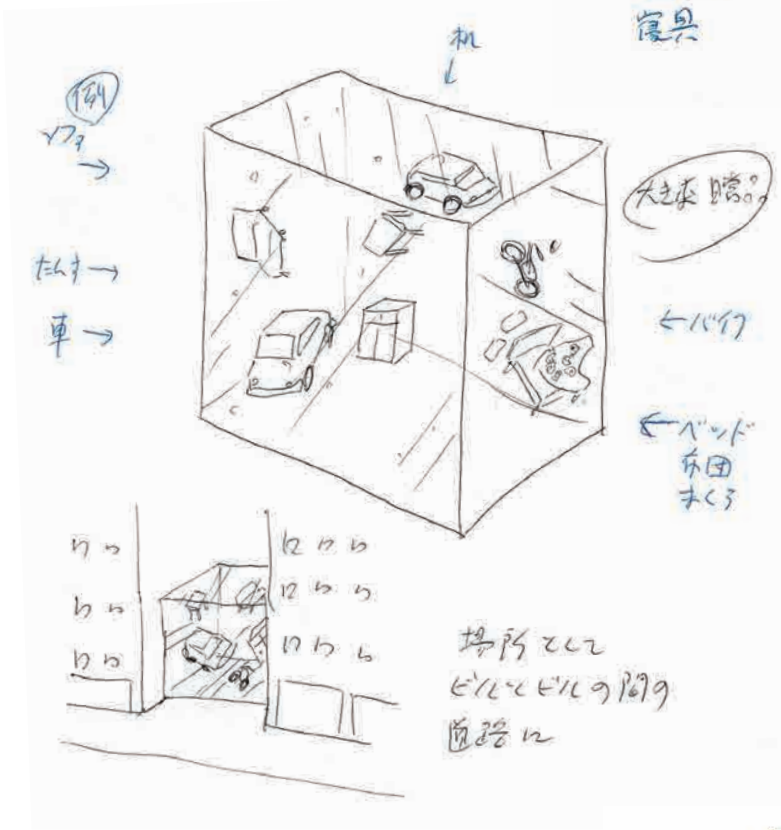 寝具
机
↓
例
ソファ
→
たんす→
車→
←バイク
←ベッド
布団
まくら
場所として
ビルとビルの間の
道路に